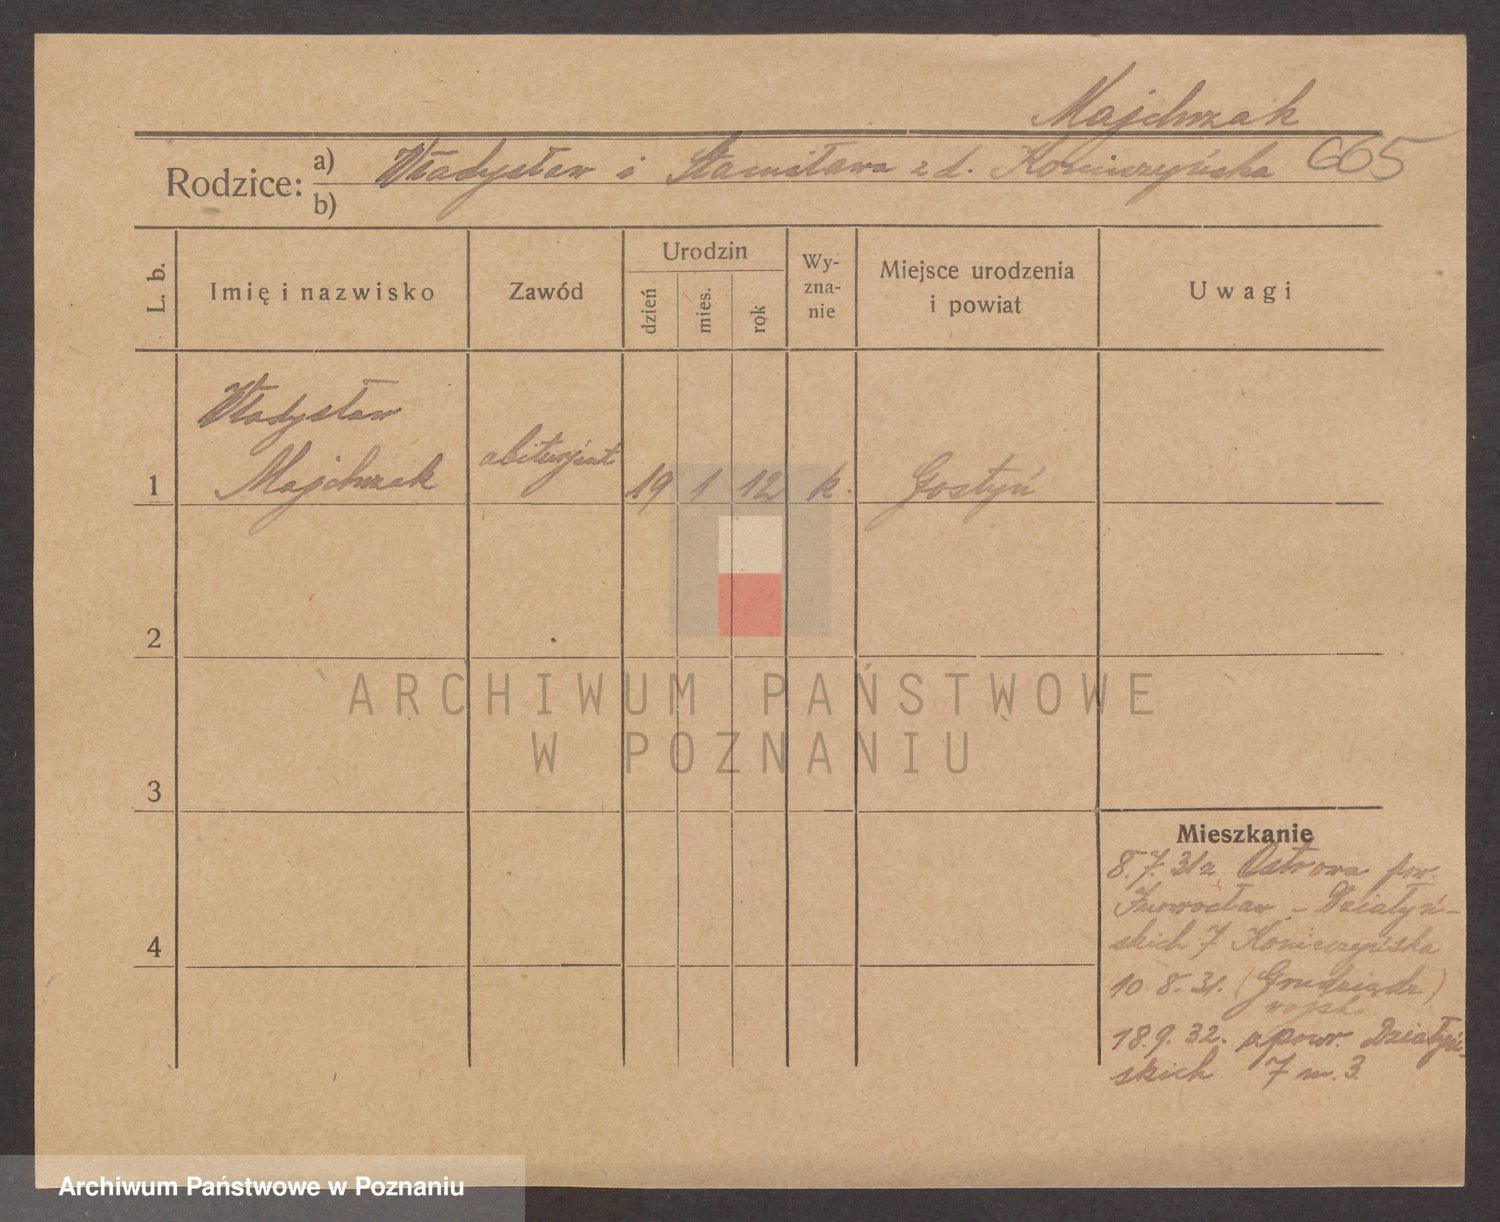 Majchrzak
Rodzice: a) Władysław i Stanisława z d. Konieczyńska 665
b)
L. b. Imię i nazwisko Zawód Urodzin dzień mies. rok Wy-zna-nie Miejsce urodzenia i powiat Uwagi
Władysław
1 Majchrzak abiturjent 19 1 12 k. Gostyń
2
3
4
Mieszkanie
8.7.31 z Ostrowa pow.
Inowrocław - Działyń-
skich 7 Konieczyńska
10.8.31. (Grudziądz)
wojsko
18.9.32. z powr. Działyń-
skich 7 m. 3.
ARCHIWUM PAŃSTWOWE
W POZNANIU
Archiwum Państwowe w Poznaniu